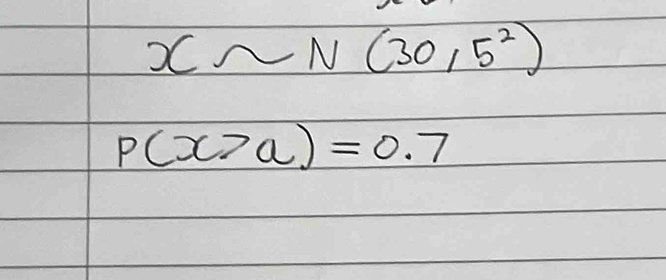 x ~ N (30, 5²)
P(x>a) = 0.7